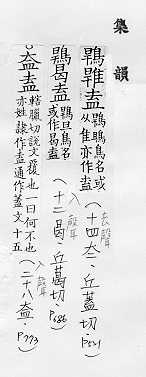 集韻
鶡鴠鳥名或
从隹亦作盍
(十四太:丘蓋切.p521)
去聲
鶡曷盍
鶡旦鳥名
或作曷盍
(十二曷:丘葛切.p686)
入聲
盇盍
轄臘切說文覆也一曰何不也
亦姓隸作盍通作蓋文十五
(二十八盍.p773)
入聲